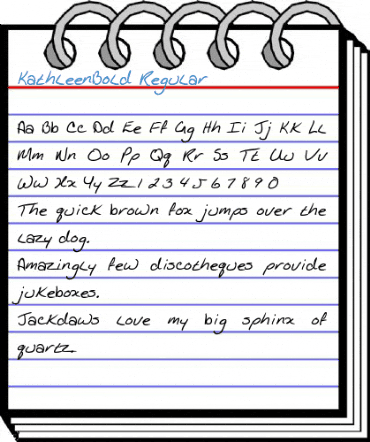 KathleenBold Regular
Aa Bb Cc Dd Ee Ff Gg Hh Ii Jj Kk Ll
Mm Nn Oo Pp Qq Rr Ss Tt Uu Vv
Ww Xx Yy Zz 1 2 3 4 5 6 7 8 9 0
The quick brown fox jumps over the
lazy dog.
Amazingly few discotheques provide
jukeboxes.
Jackdaws love my big sphinx of
quartz.